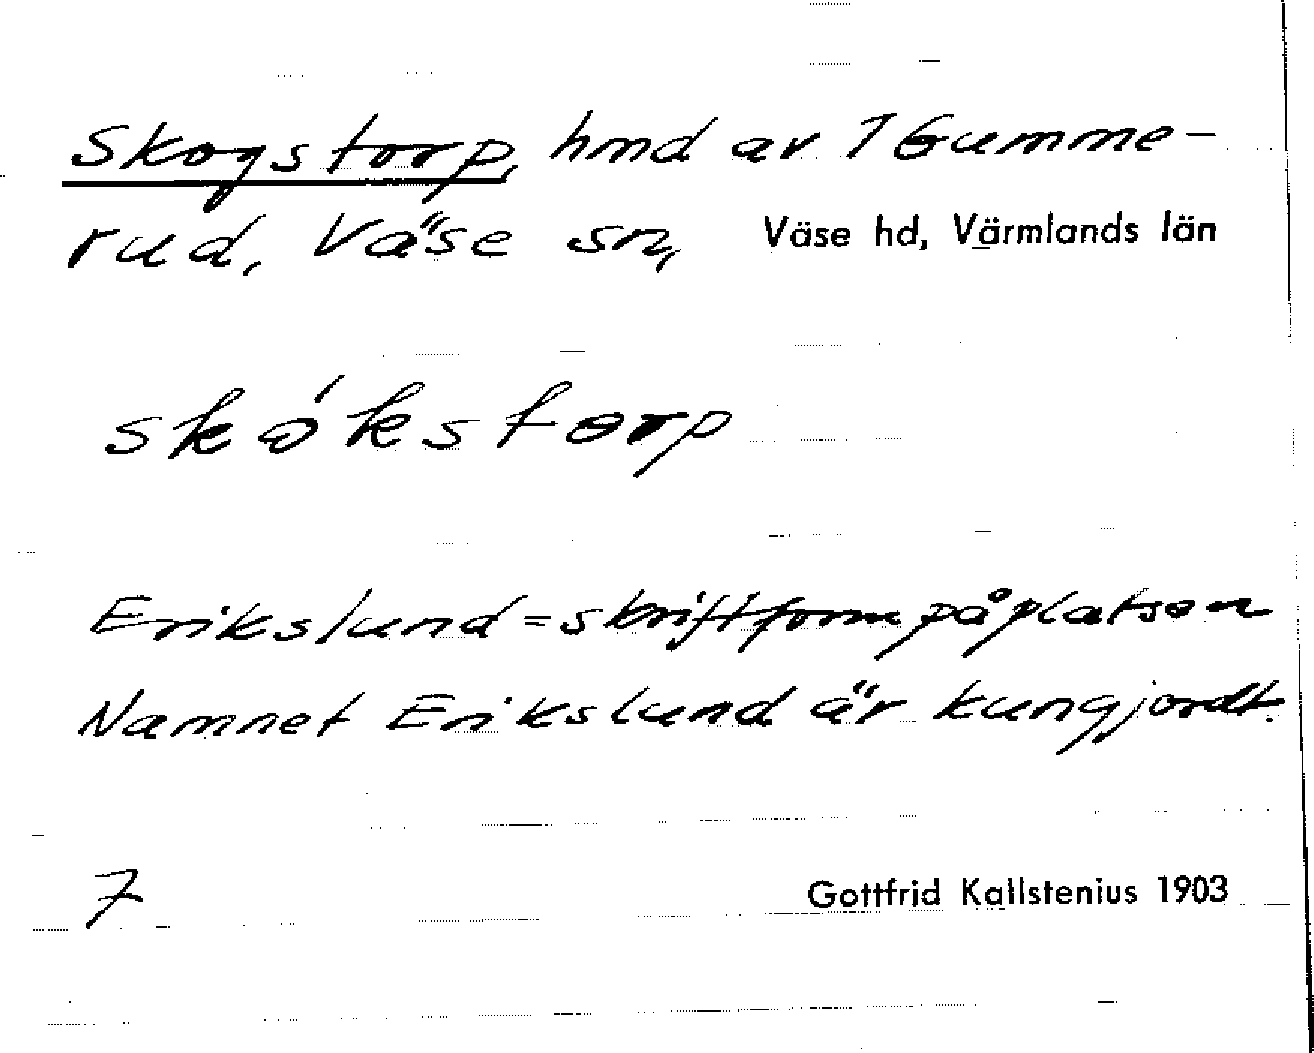 Skogstorp, hmd av 1 Gumme-
rud, Väse sn, Väse hd, Värmlands län
skókstorp
Erikslund = skriftform på platsen
Namnet Erikslund är kungjordt.
7
Gottfrid Kallstenius 1903